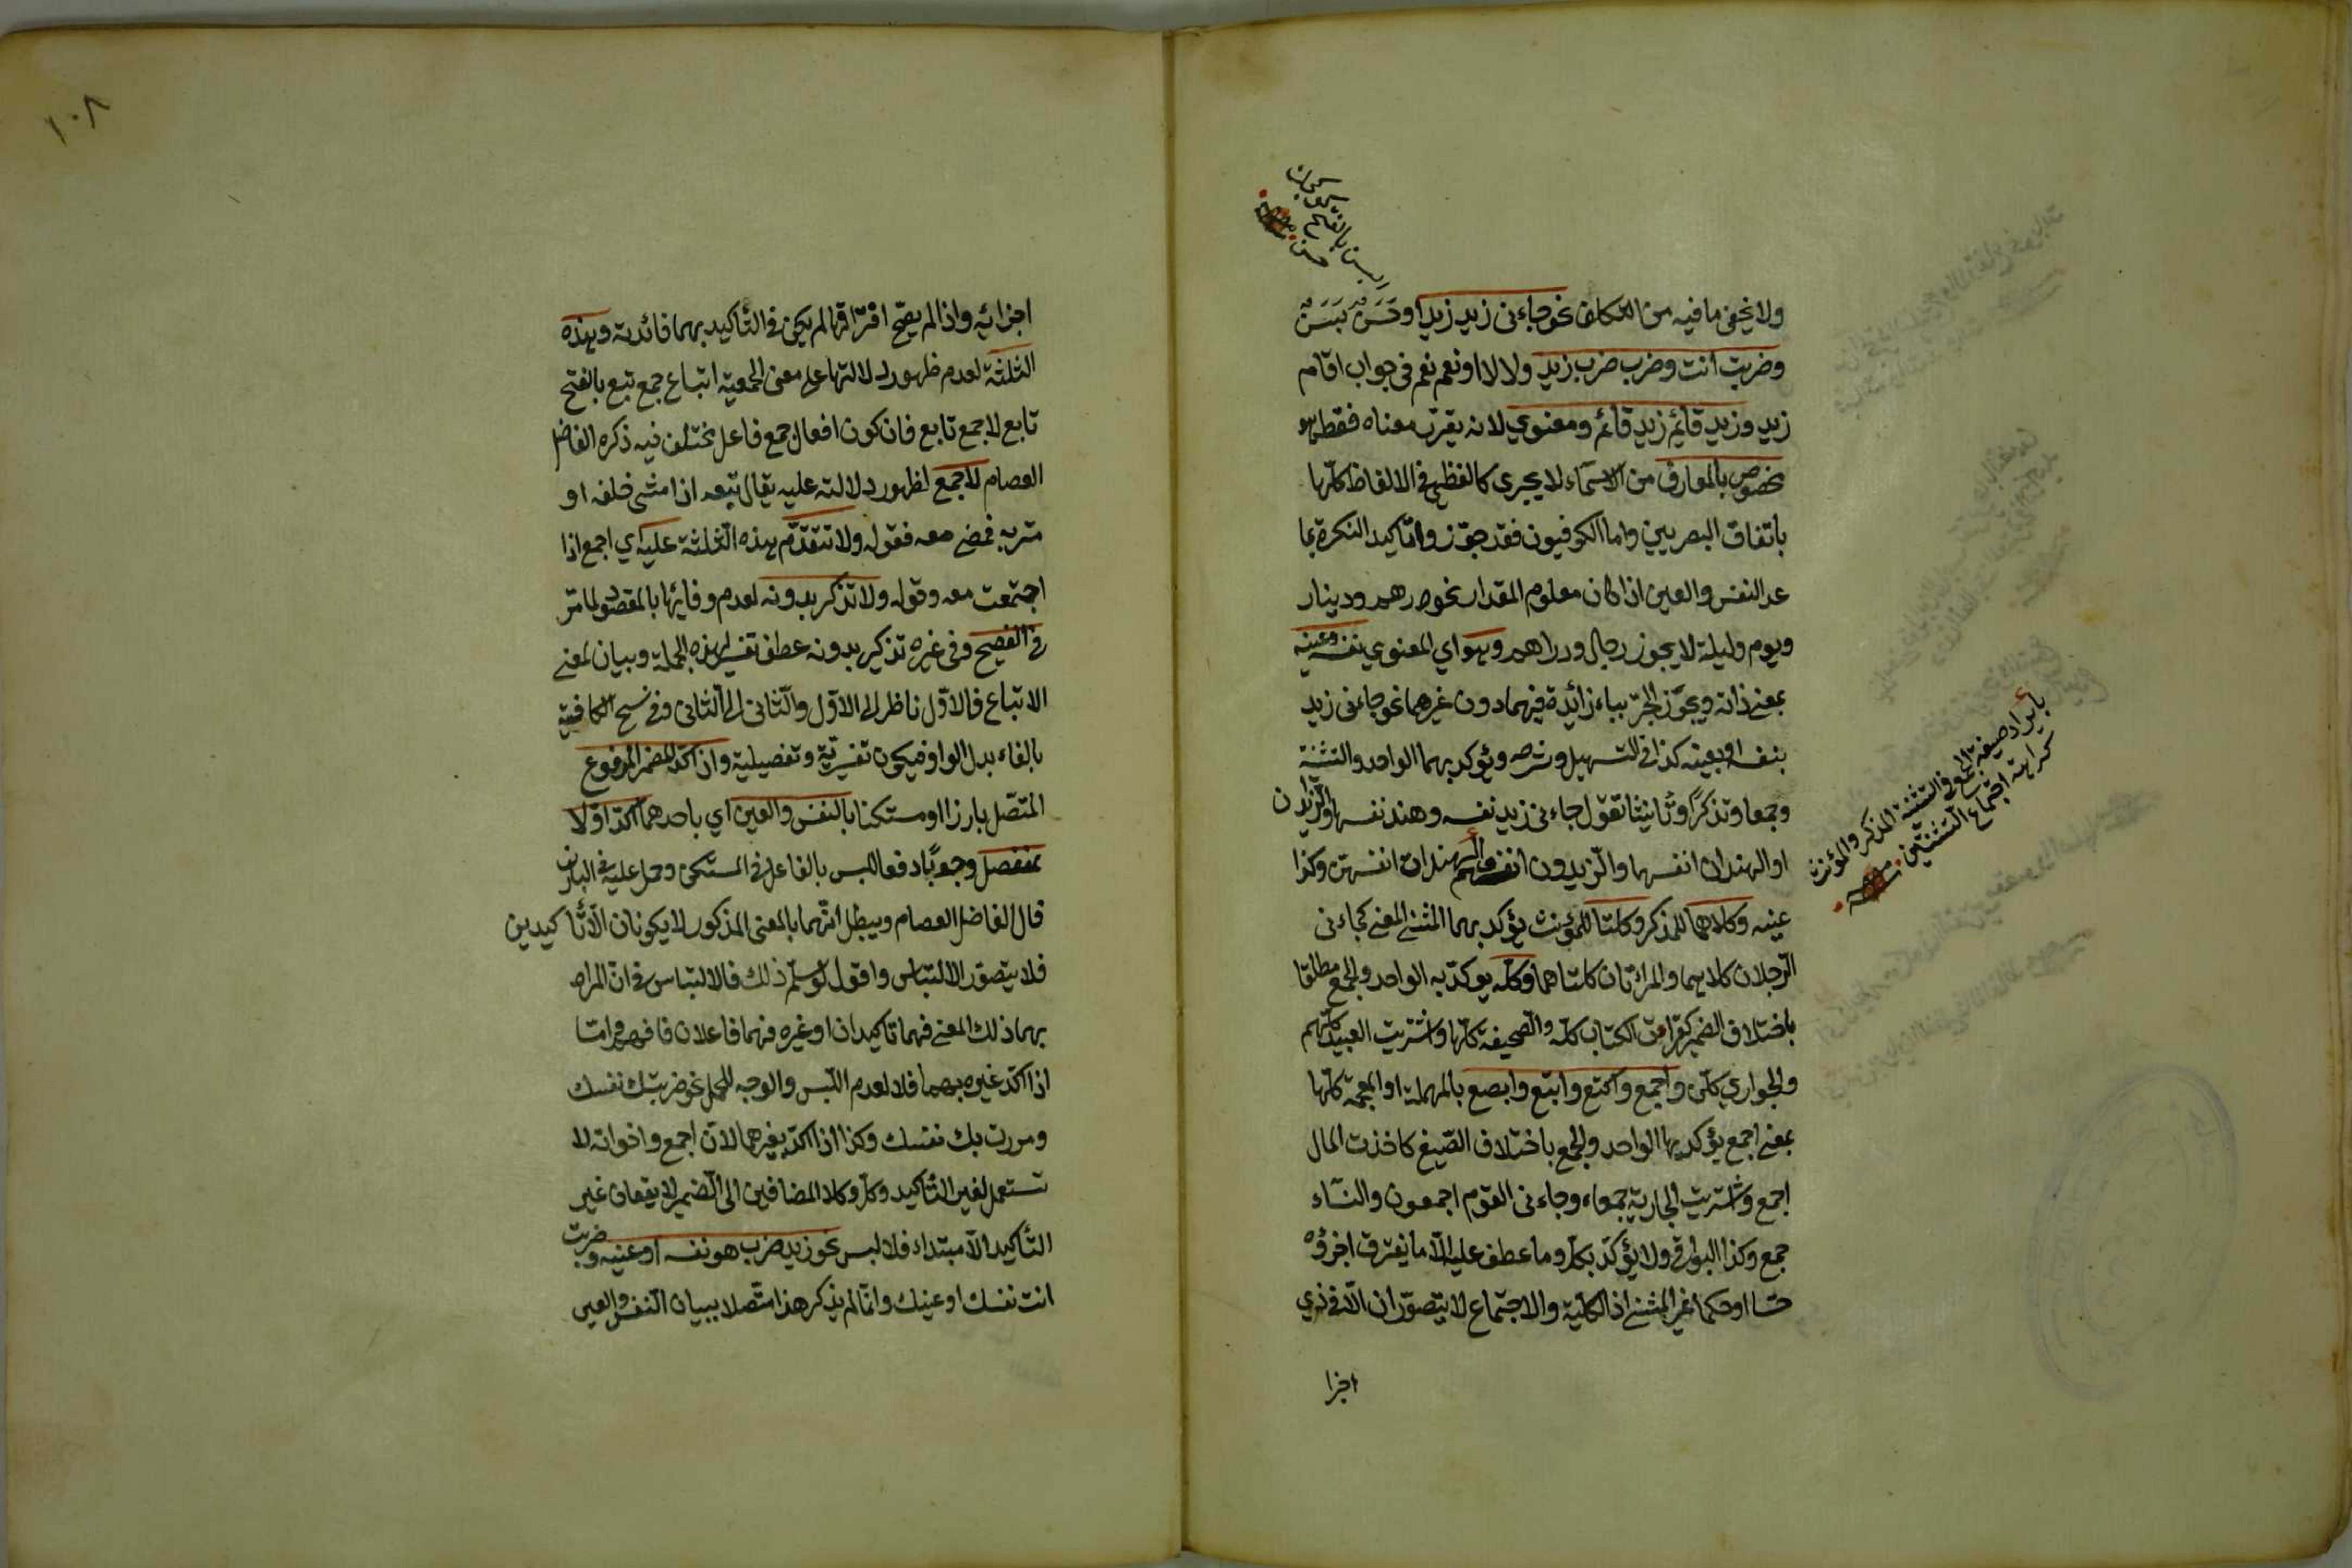 ولا يخفى ما فيه من التكلف نحو جاءنى زيد زيد او حَسَنٌ بَسَنٌ
وضربت انت وضرب ضرب زيد ولا لا او نعم نعم فى جواب اقام
زيد وزيد قائم زيد قائم ومعنوي لانه يقرّر معناه فقط وهو
مخصوص بالمعارف من الاسماء لا يجرى كاللفظى فى الالفاظ كلّها
باتفاق البصريين واما الكوفيون فقد جوّزوا تاكيد النكرة بما
عد النفس والعين اذا كان معلوم المقدار نحو درهم ودينار
ويوم وليلة لا يجوز رجال ودراهم وهو اي المعنوي نفسه وعينه
بمعنى ذاته ويجوّز الجرّ بباء زائدة فيهما دون غيرهما نحو جاءنى زيد
بنفسه او بعينه كذا فى التسهيل وشرحه ويؤكد بهما الواحد والتثنية
وجمعا وتذكيرًا وتأنيثا تقول جاءنى زيد نفسه وهند نفسها والزيدان
او الهندان انفسهما والزيدون انفسهم والهندات انفسهن وكذا
عينه وكلاهما للمذكر وكلتا للمؤنث يؤكد بهما المثنى المعنى كجاءنى
الرجلان كلاهما والمرأتان كلتاهما وكلّه يؤكد به الواحد والجمع مطلقا
باختلاف الضمير كقرأت الكتاب كلّه والصحيفة كلّها واشتريت العبيد كلّهم
والجواري كلّهن واجمع واكتع وابتع وابصع بالمهملة او المعجمة كلّها
بمعنى اجمع يؤكد بها الواحد والجمع باختلاف الصّيغ كاخذت المال
اجمع واشتريت الجارية جمعاء وجاءنى القوم اجمعون والنساء
جمع وكذا البواقى ولا يؤكد بكلّ وما عطف عليه الّا ما يفترق اجزؤه
حسّا او حكما غير المثنى اذ الكلّية والاجتماع لا يتصوّران الّا فى ذي
اجزا
بأيراد صيغة الجمع فى التثنية المذكر والمؤنث
كراهة اجتماع التثنيتين
بسن بالفتح
حسن
١٠٨
اجزائه واذا لم يصحّ افتراقها لم يكن فى التأكيد بهما فائدة وهذه
الثلثة لعدم ظهور دلالتها على معنى الجمعية اتباع جمع تبع بالفتح
تابع لا جمع تابع فان كون افعال جمع فاعل مختلف فيه ذكره الفاضل
العصام لاجمع لظهور دلالته عليه يقال تبعه اذا مشى خلفه او
مرّ به فمضى معه فقوله ولا تتقدّم هذه الثلثة عليه اي اجمع اذا
اجتمعت معه وقوله ولا تذكر بدونه لعدم وفائها بالمقصود لما مرّ
فى الفصيح وفى غيره تذكير بدونه عطف تفسير لهذه الجملة وبيان لمعنى
الاتباع فالاوّل ناظر الى الاوّل والثانى الى الثانى وفى نسخ الكافية
بالفاء بدل الواو فيكون تفسيريّة وتفصيلية واذا اكّد المضمر المرفوع
المتّصل بارزا او مستكنا بالنفس والعين اي باحدهما اكّد اوّلا
بمنفصل وجوبًا دفعا للبس بالفاعل فى المستكن وحمل عليه فى البارز
قال الفاضل العصام ويبطل انّهما بالمعنى المذكور لا يكونان الّا تأكيدين
فلا يتصوّر الالتباس واقول لو سلّم ذلك فالالتباس فى انّ المراد
بهما ذلك المعنى فهما تاكيدان او غيره فهما فاعلان فافهم وامّا
اذا اكّد غيره بهما فلا لعدم اللّبس والوجه للحمل نحو ضربتك نفسك
ومررت بك نفسك وكذا اذا اكّد بغيرهما لانّ اجمع واخواته لا
تستعمل لغير التأكيد وكلّ وكلا المضافين الى الضمير لا يقعان غير
التأكيد الّا مبتداء فلا لبس نحو زيد ضرب هو نفسه او عينه وضربت
انت نفسك او عينك وانّما لم يذكر هذا متّصلا ببيان النفس والعين